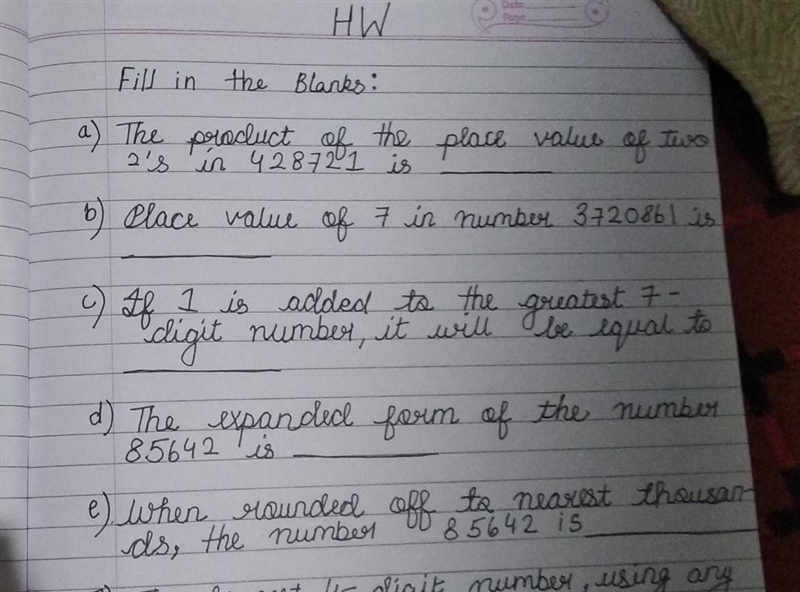 HW
Date
Page
Fill in the Blanks:
a) The product of the place value of two
2's in 428721 is
b) Place value of 7 in number 3720861 is
c) If 1 is added to the greatest 7-
digit number, it will be equal to
d) The expanded form of the number
85642 is
e) When rounded off to nearest thousan-
ds, the number 85642 is
4-digit number, using any